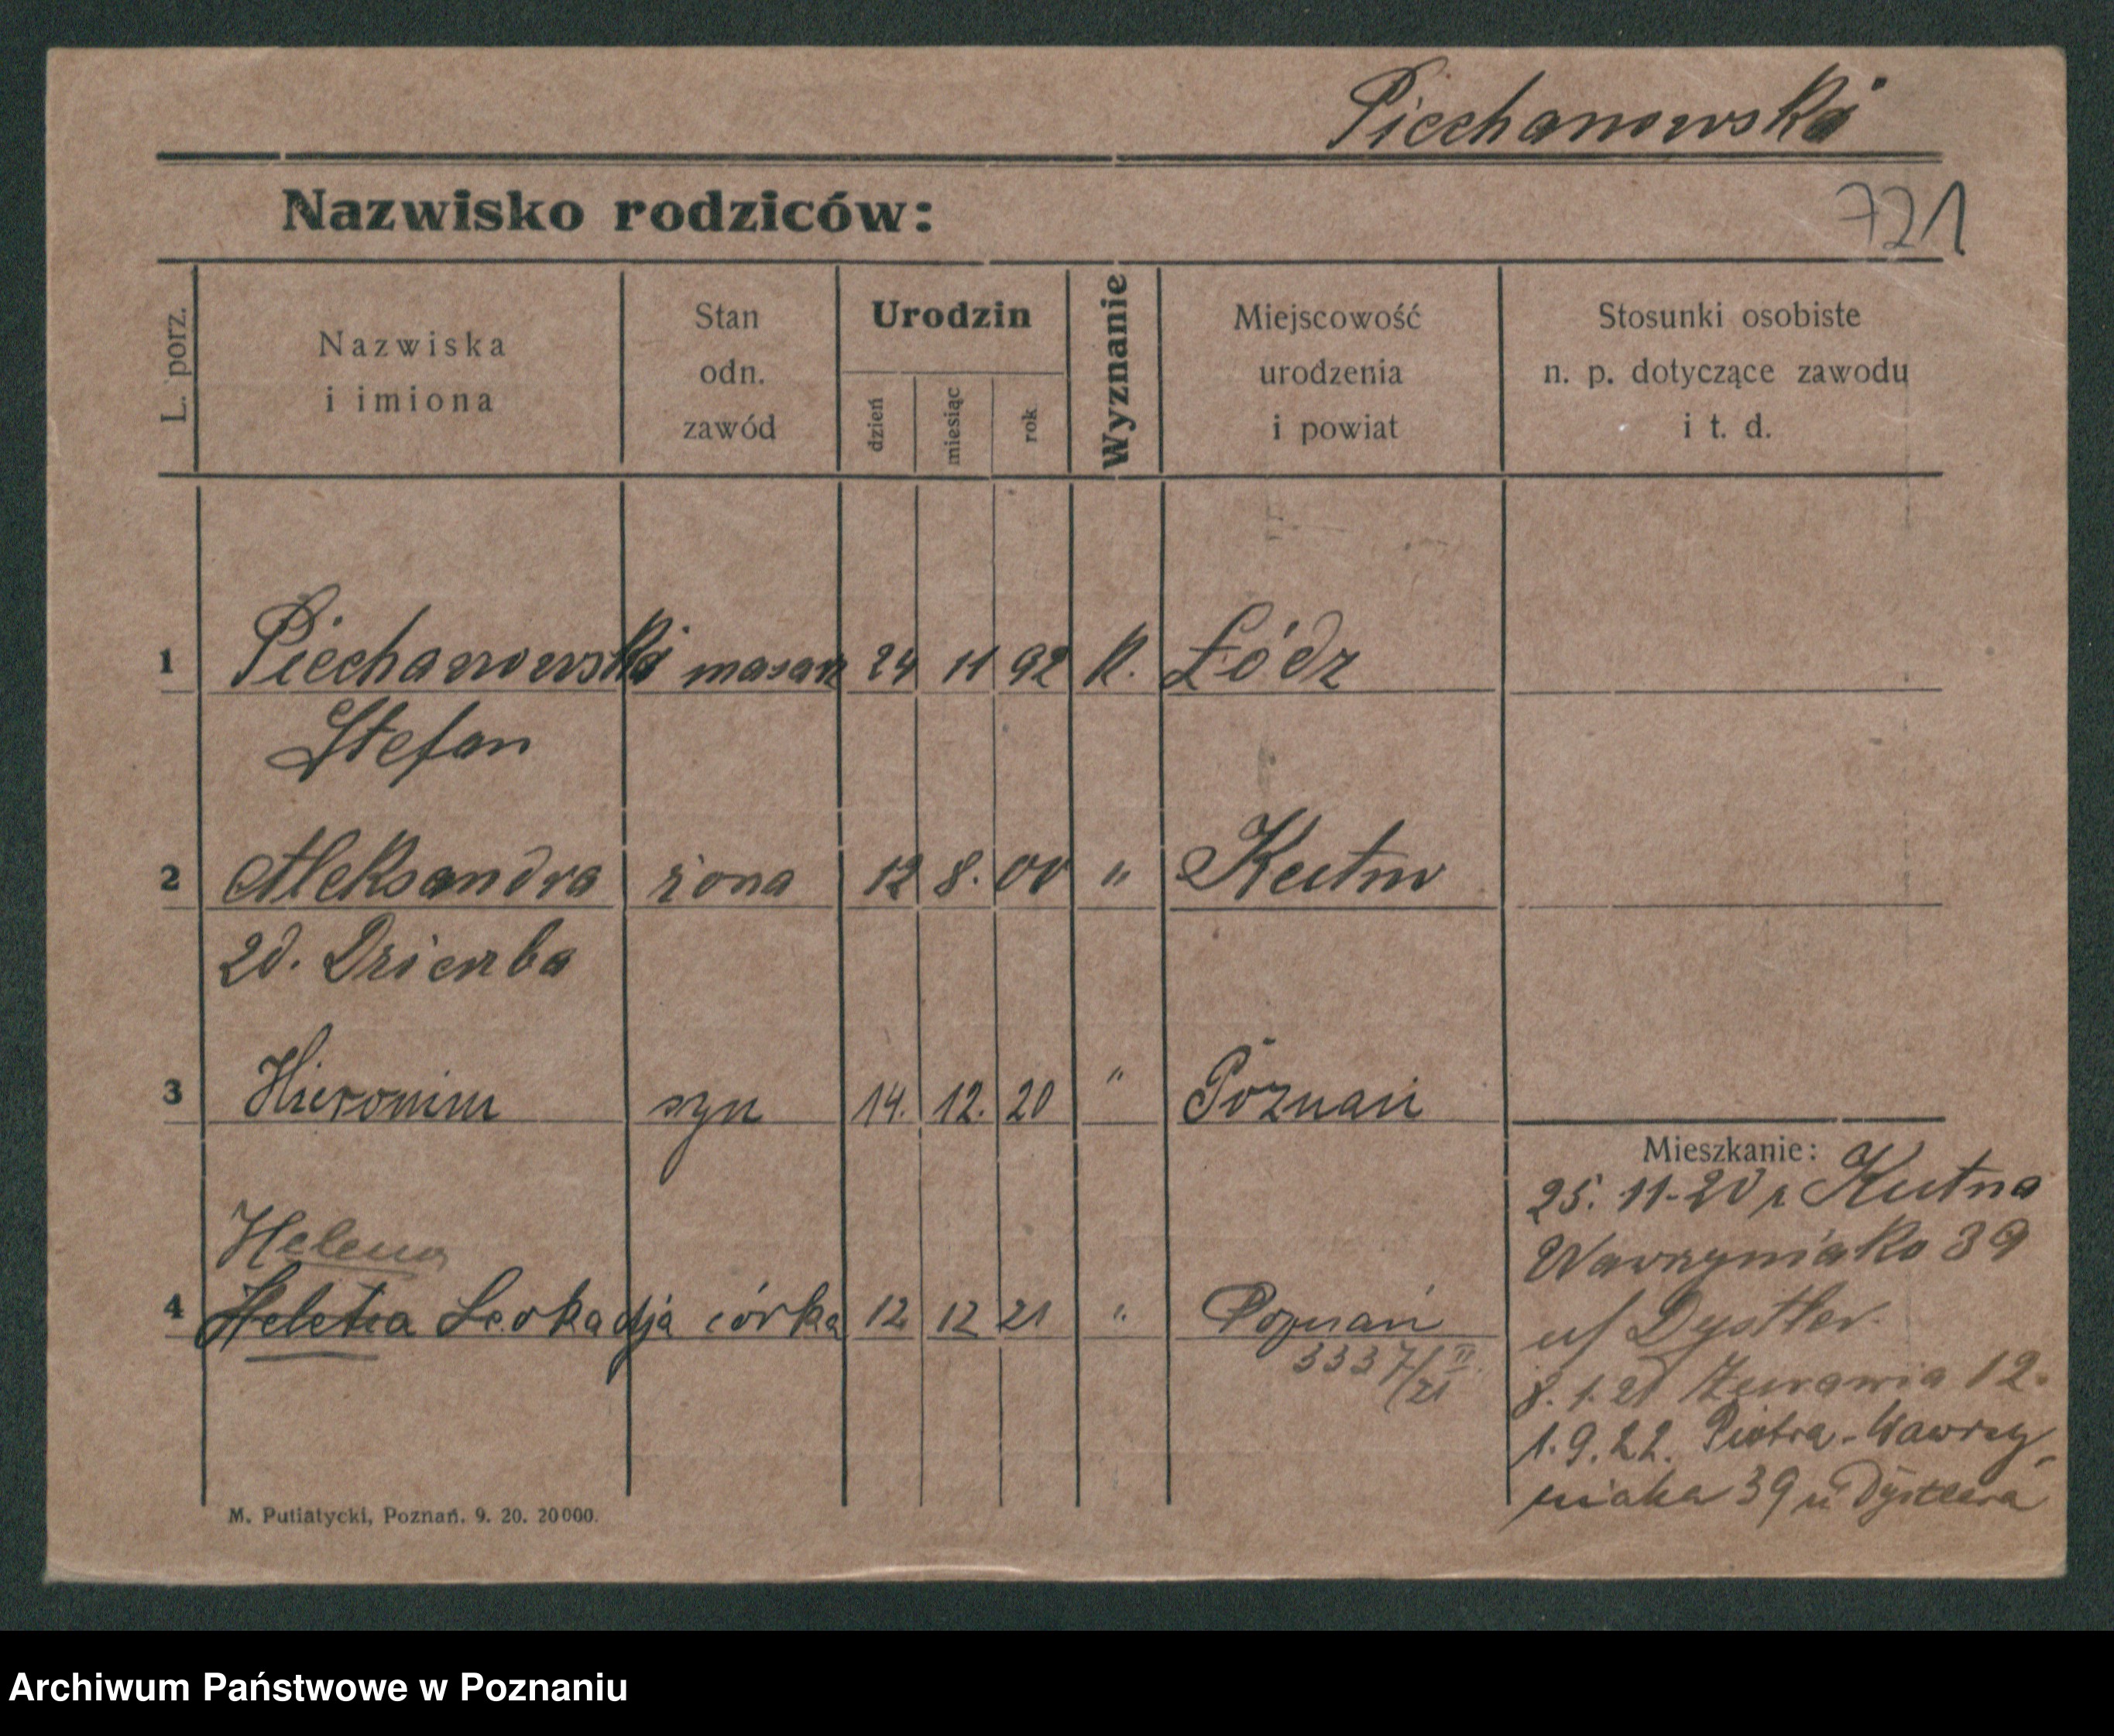 Piechanowski
Nazwisko rodziców:
721
L. porz.
Nazwiska
i imiona
Stan
odn.
zawód
Urodzin
dzień
miesiąc
rok
Wyznanie
Miejscowość
urodzenia
i powiat
Stosunki osobiste
n. p. dotyczące zawodu
i t. d.
1 Piechanowski masarz 24 11 92 K. Łódz
Stefan
2 Aleksandra żona 12 8. 00 " Kutno
zd. Dzierzba
3 Hieronim syn 14. 12. 20 " Poznań
Helena
4 Helena Leokadja córka 12 12 21 " Poznań
3337/II 21
Mieszkanie:
25. 11-20 z Kutna
Wawrzyniaka 39
u/ Dystler.
8. 1. 21 Żurawia 12.
1. 9. 22. Piotra-Wawrzy-
niaka 39 u Dystlera
M. Putiatycki, Poznań. 9. 20. 20000.
Archiwum Państwowe w Poznaniu